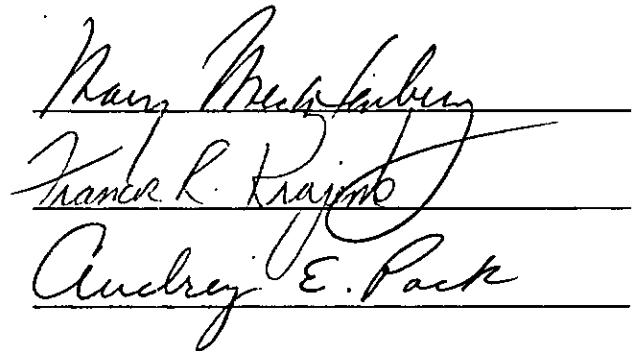 Mary Mecklenburg
Francis R. Krajins
Audrey E. Pack